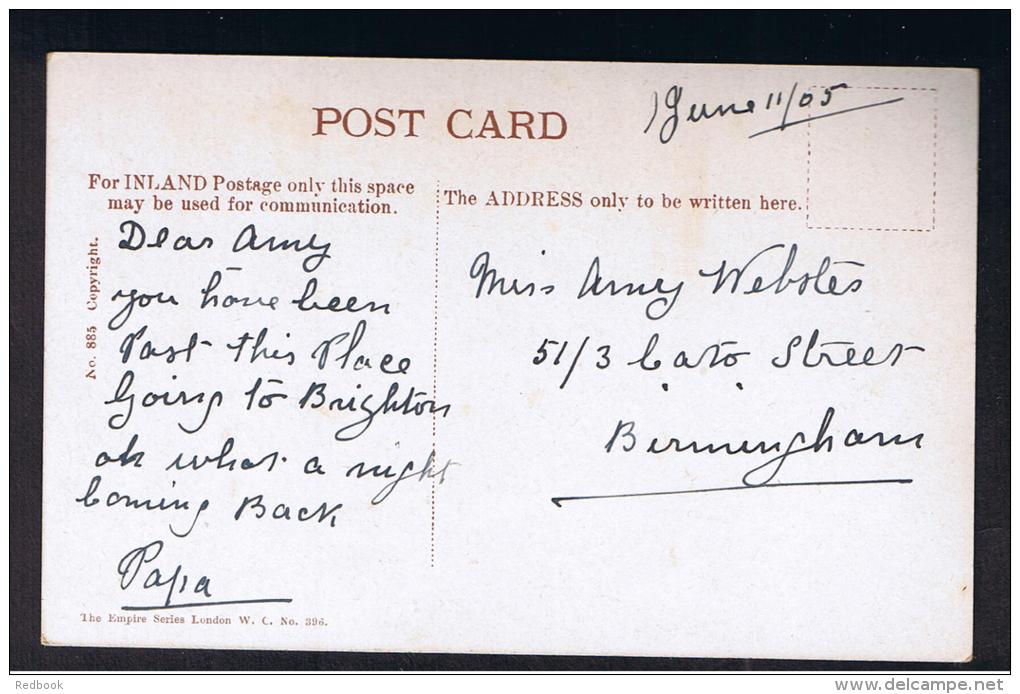 POST CARD
June 11/05
For INLAND Postage only this space
may be used for communication.
The ADDRESS only to be written here.
No. 885 Copyright.
Dear Amy
you have been
Past this Place
Going to Brighton
oh what a night
Coming Back
Papa
Miss Amey Webster
51/3 Cato Street
Bermingham
The Empire Series London W. C. No. 396.
Redbook
delcampe.net